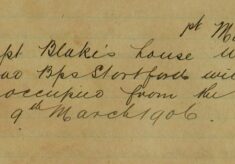 pt M
pt Blake's house
Bps Stortford
occupied from the
9th March 1906.